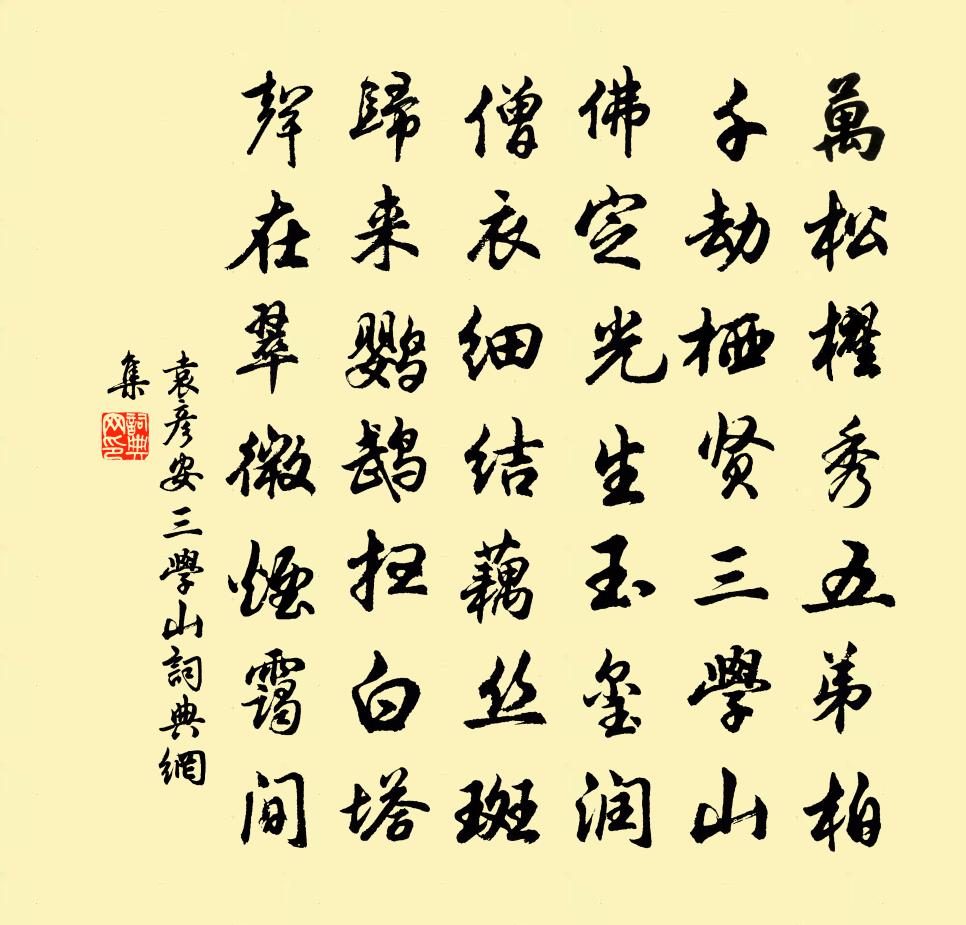 萬松櫂秀五弟柏
千劫栖贤三學山
佛定光生玉玺润
僧衣细结藕丝斑
歸来鹦鹉扫白塔
聲在翠微煙霭间
袁彦安三學山詞典網
集
詞典网印